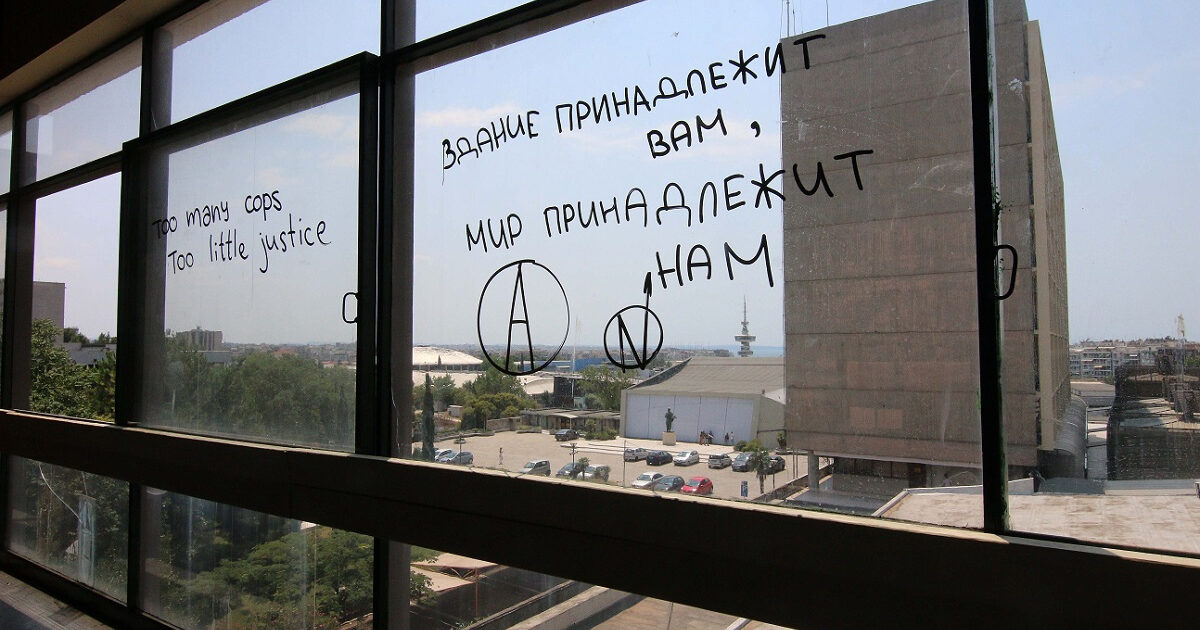 Too many cops
Too little justice
ЗДАНИЕ ПРИНАДЛЕЖИТ
ВАМ,
МИР ПРИНАДЛЕЖИТ
НАМ
A N